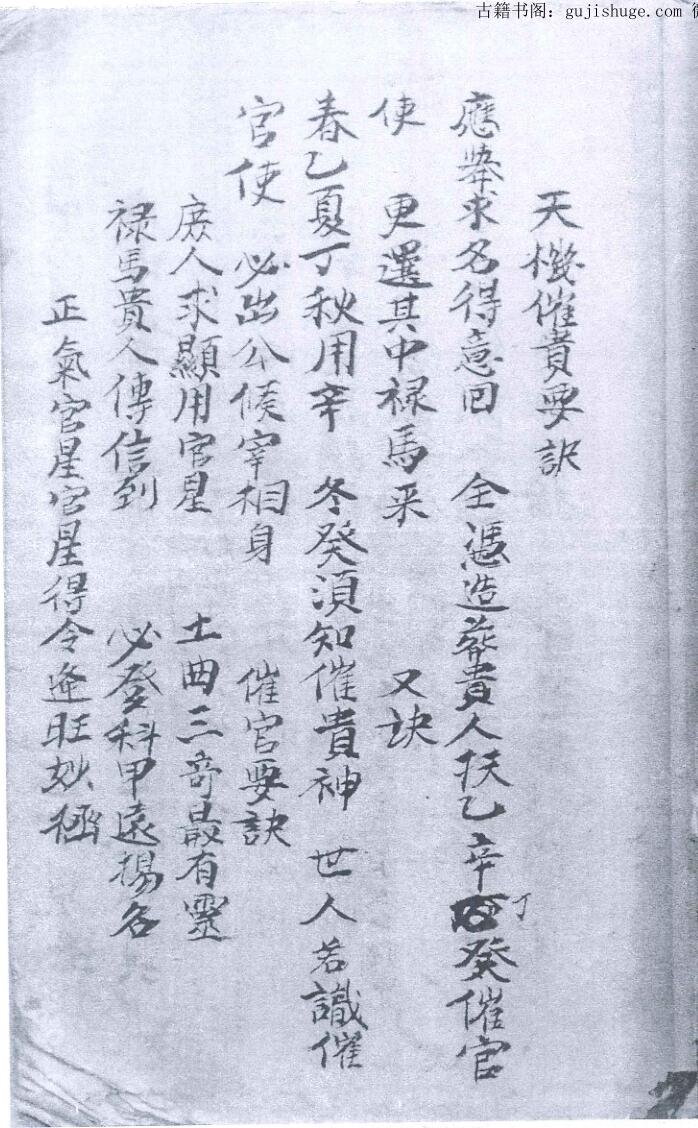 古籍书阁：gujishuge.com
天機催貴要訣
應舉求名得意回　全憑造葬貴人扶乙辛丁癸催官
使　更選其中禄馬来　又訣
春乙夏丁秋用辛　冬癸須知催貴神　世人若識催
官使　必出公候宰相身　催官要訣
庶人求顯用官星　土曲三奇最有靈
禄馬貴人傳信到　必登科甲遠揚名
正氣官星官星得令逢旺妙極